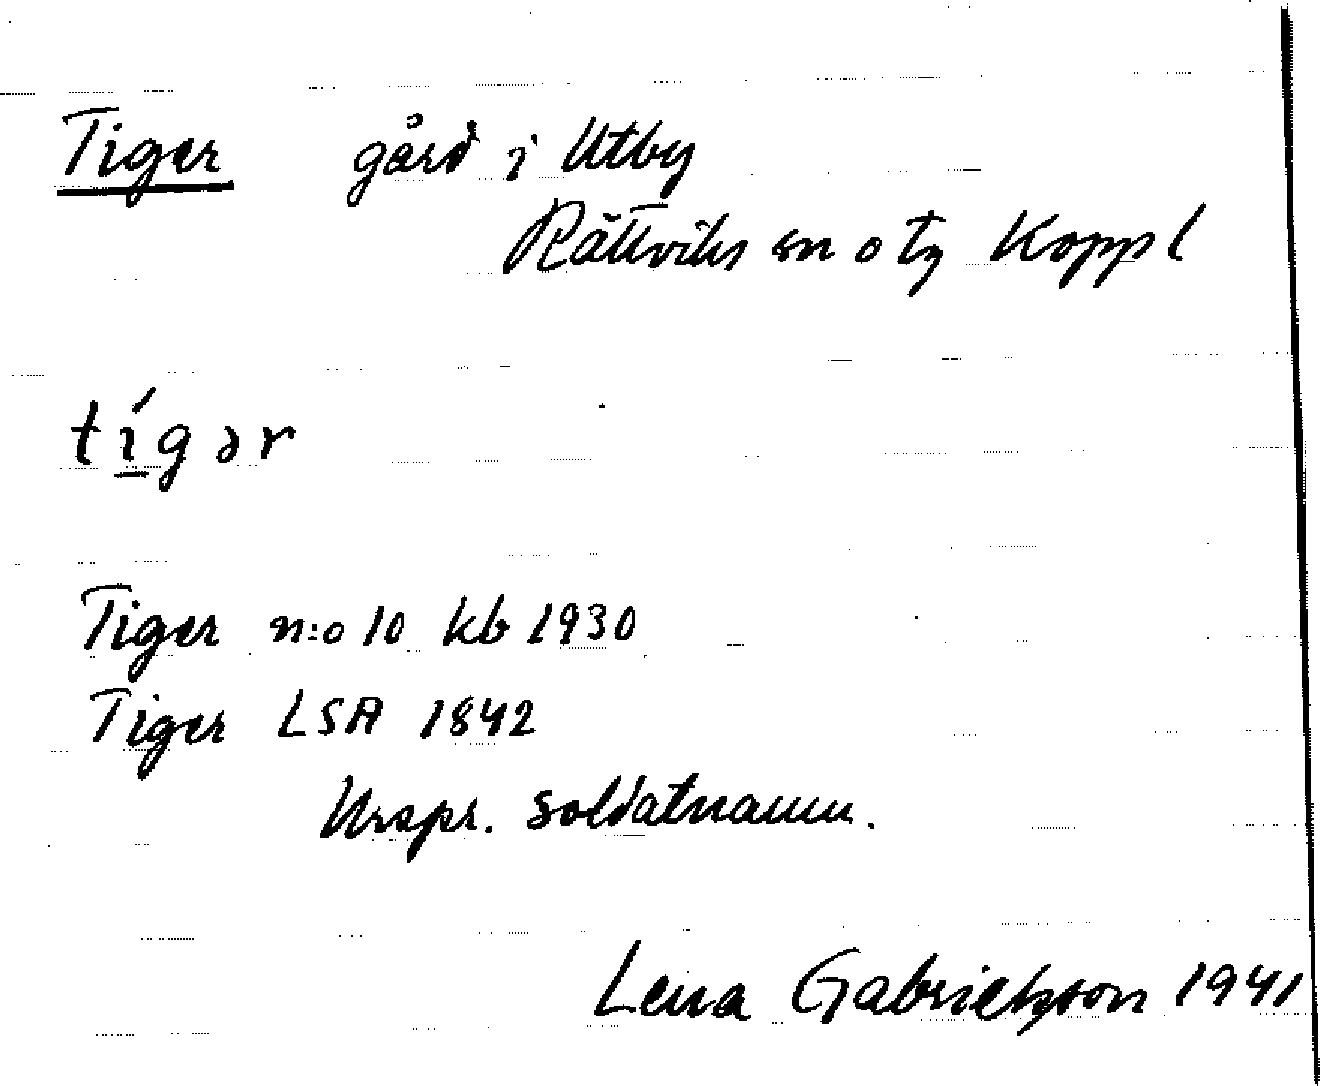 Tiger gård i Utby
Rättviks sn o tg Koppl
tígər
Tiger n:o 10 kb 1930
Tiger LSA 1842
Urspr. soldatnamn.
Lena Gabrielsson 1941